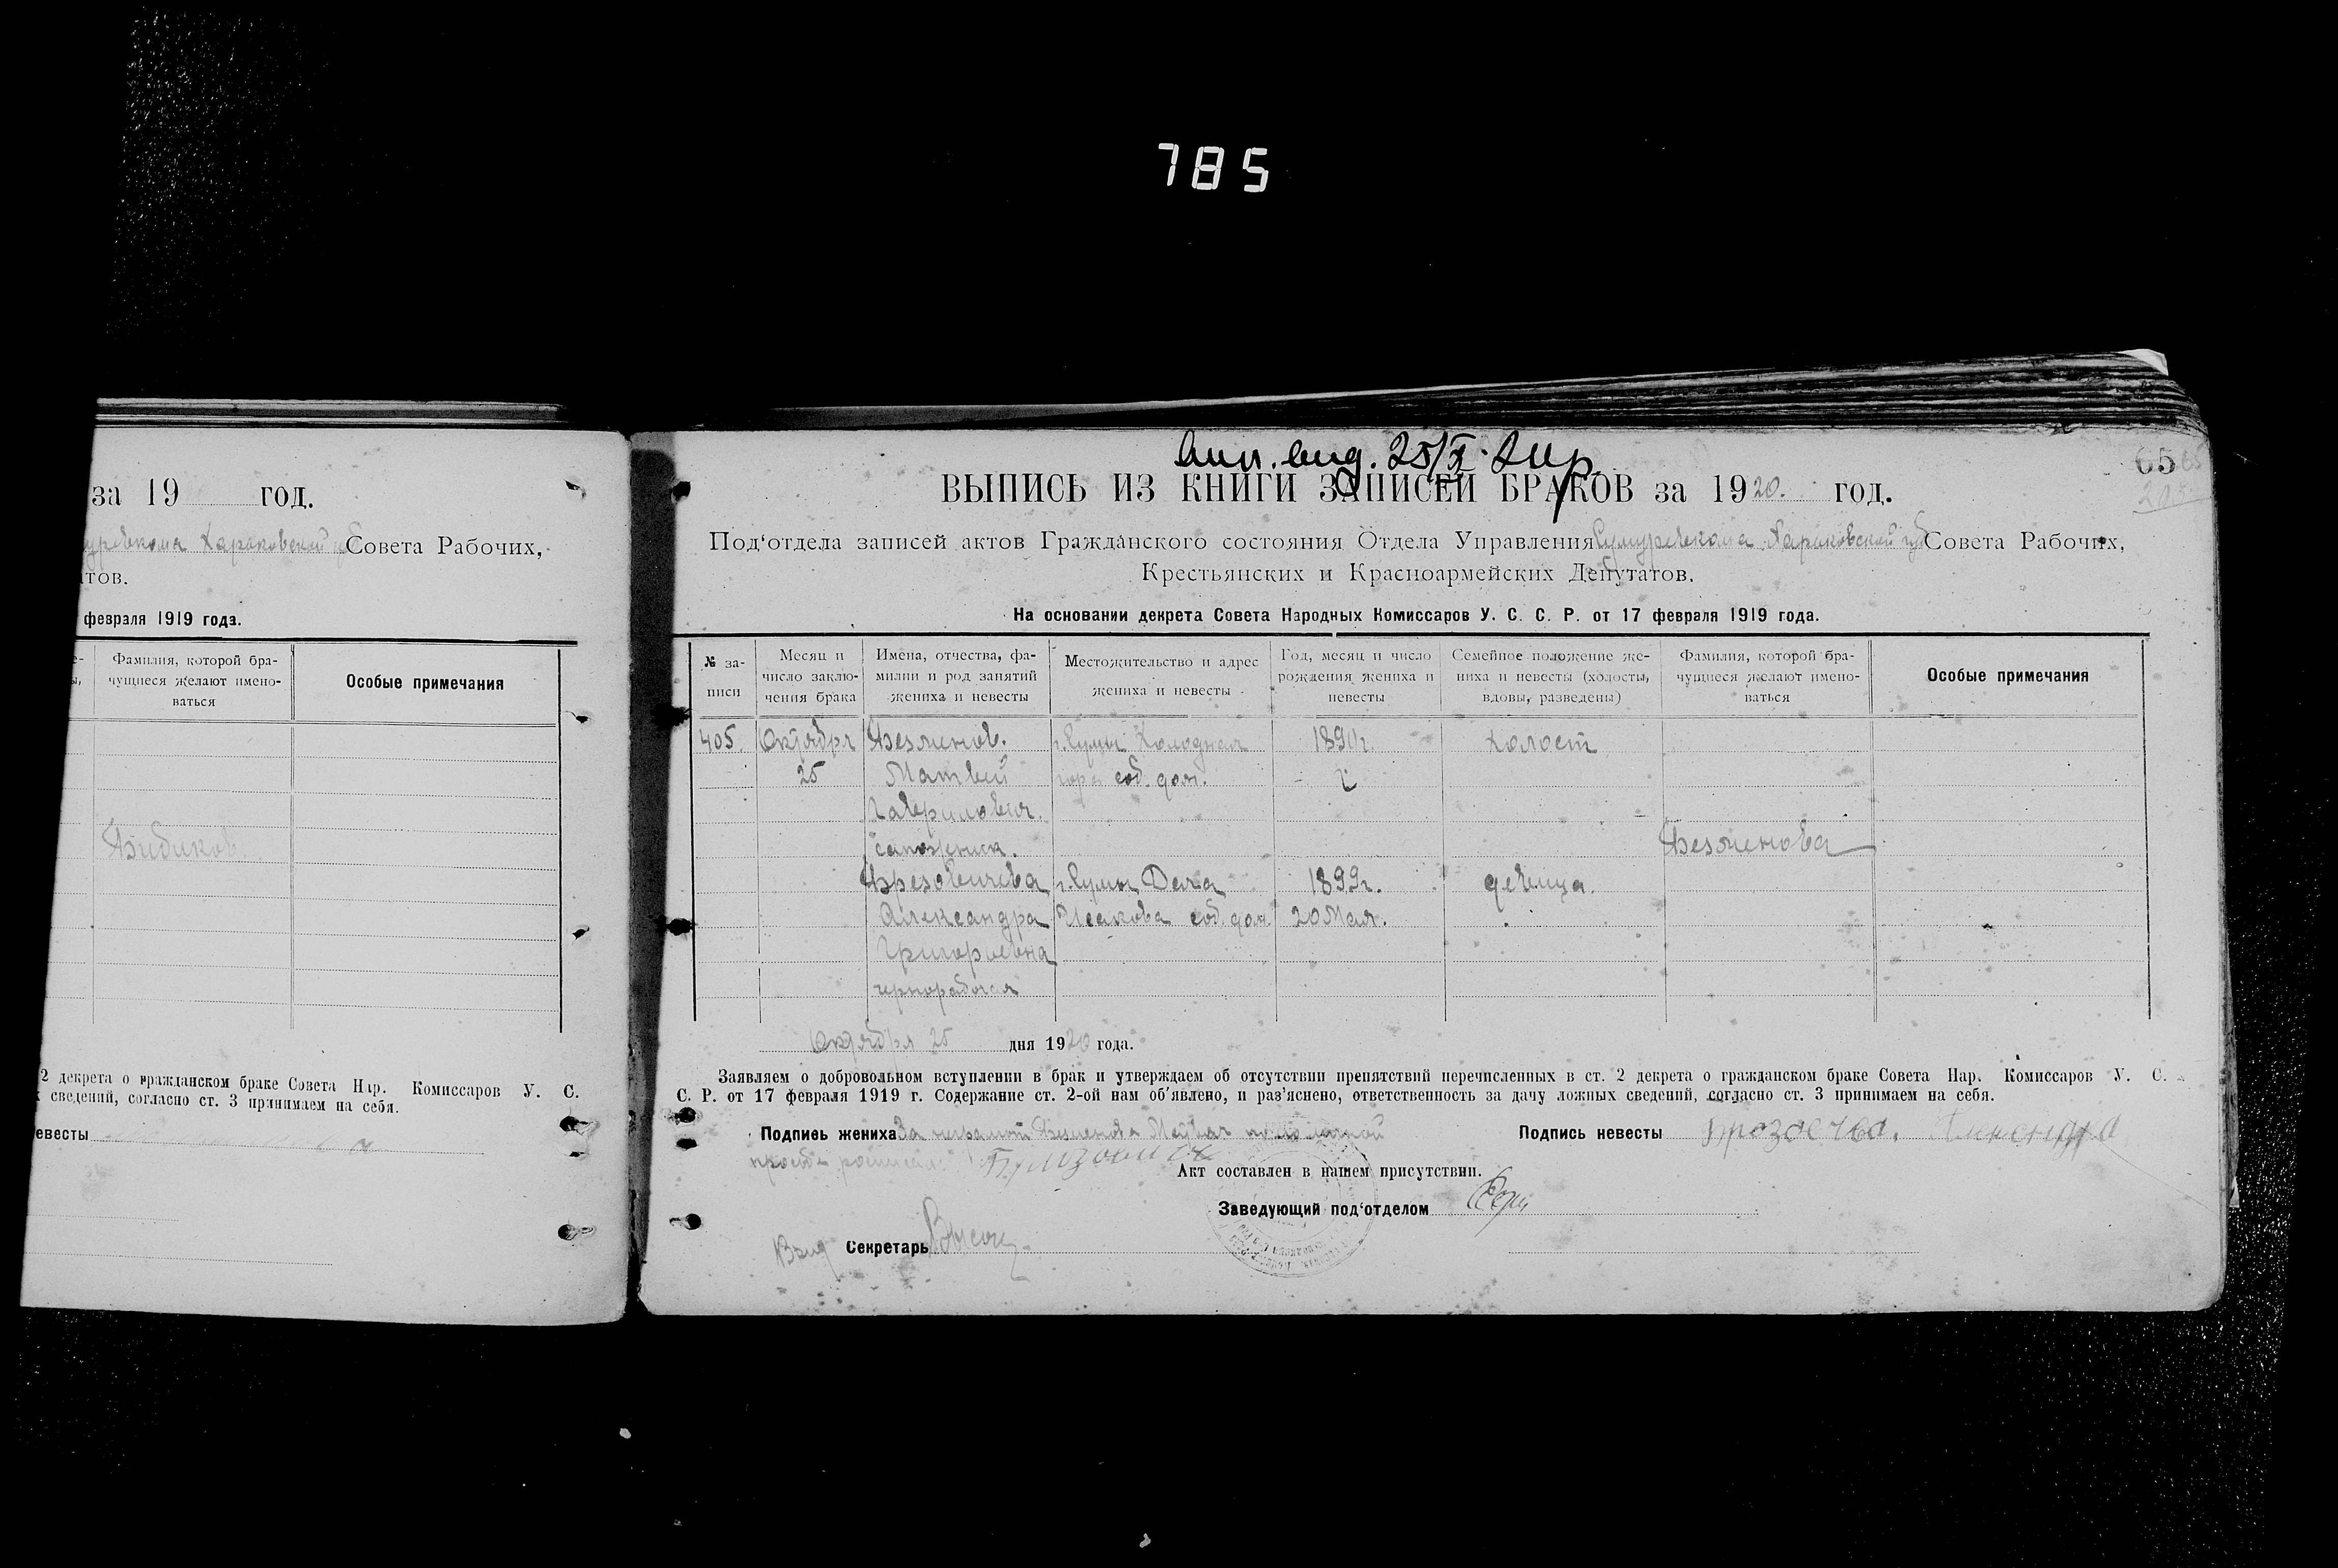 785
за 19 год.
Харьковской Совета Рабочих,
тов.
февраля 1919 года.
Фамилия, которой бра-
чущиеся желают имено-
ваться
Особые примечания
Бибиков
2 декрета о гражданском браке Совета Нар. Комиссаров У. С.
сведений, согласно ст. 3 принимаем на себя.
евесты
65
25/X
ВЫПИСЬ ИЗ КНИГИ ЗАПИСЕЙ БРАКОВ за 1920. год.
Под‘отдела записей актов Гражданского состояния Отдела Управления Сумуревкома Харьковской губ Совета Рабочих,
Крестьянских и Красноармейских Депутатов.
На основании декрета Совета Народных Комиссаров У. С. С. Р. от 17 февраля 1919 года.
№ за-
писи
Месяц и
число заклю-
чения брака
Имена, отчества, фа-
милии и род занятий
жениха и невесты
Местожительство и адрес
жениха и невесты
Год, месяц и число
рождения жениха и
невесты
Семейное положение же-
ниха и невесты (холосты,
вдовы, разведены)
Фамилия, которой бра-
чущиеся желают имено-
ваться
Особые примечания
405. Октября г. Сумы Холодная 1890г. холост
25 Матвей гора соб. дом.
Гаврилович.
сапожник.
г. Сумы 1899г. девица.
Александра Исакова соб. дом. 20 Мая.
Григорьевна
чернорабочая
Октября 25 дня 1920 года.
Заявляем о добровольном вступлении в брак и утверждаем об отсутствии препятствий перечисленных в ст. 2 декрета о гражданском браке Совета Нар. Комиссаров У. С.
С. Р. от 17 февраля 1919 г. Содержание ст. 2-ой нам об‘явлено, и раз‘яснено, ответственность за дачу ложных сведений, согласно ст. 3 принимаем на себя.
Подпись жениха За неграмот Матвея по личной
Подпись невесты
просьбе
Акт составлен в нашем присутствии.
Заведующий под‘отделом
Секретарь